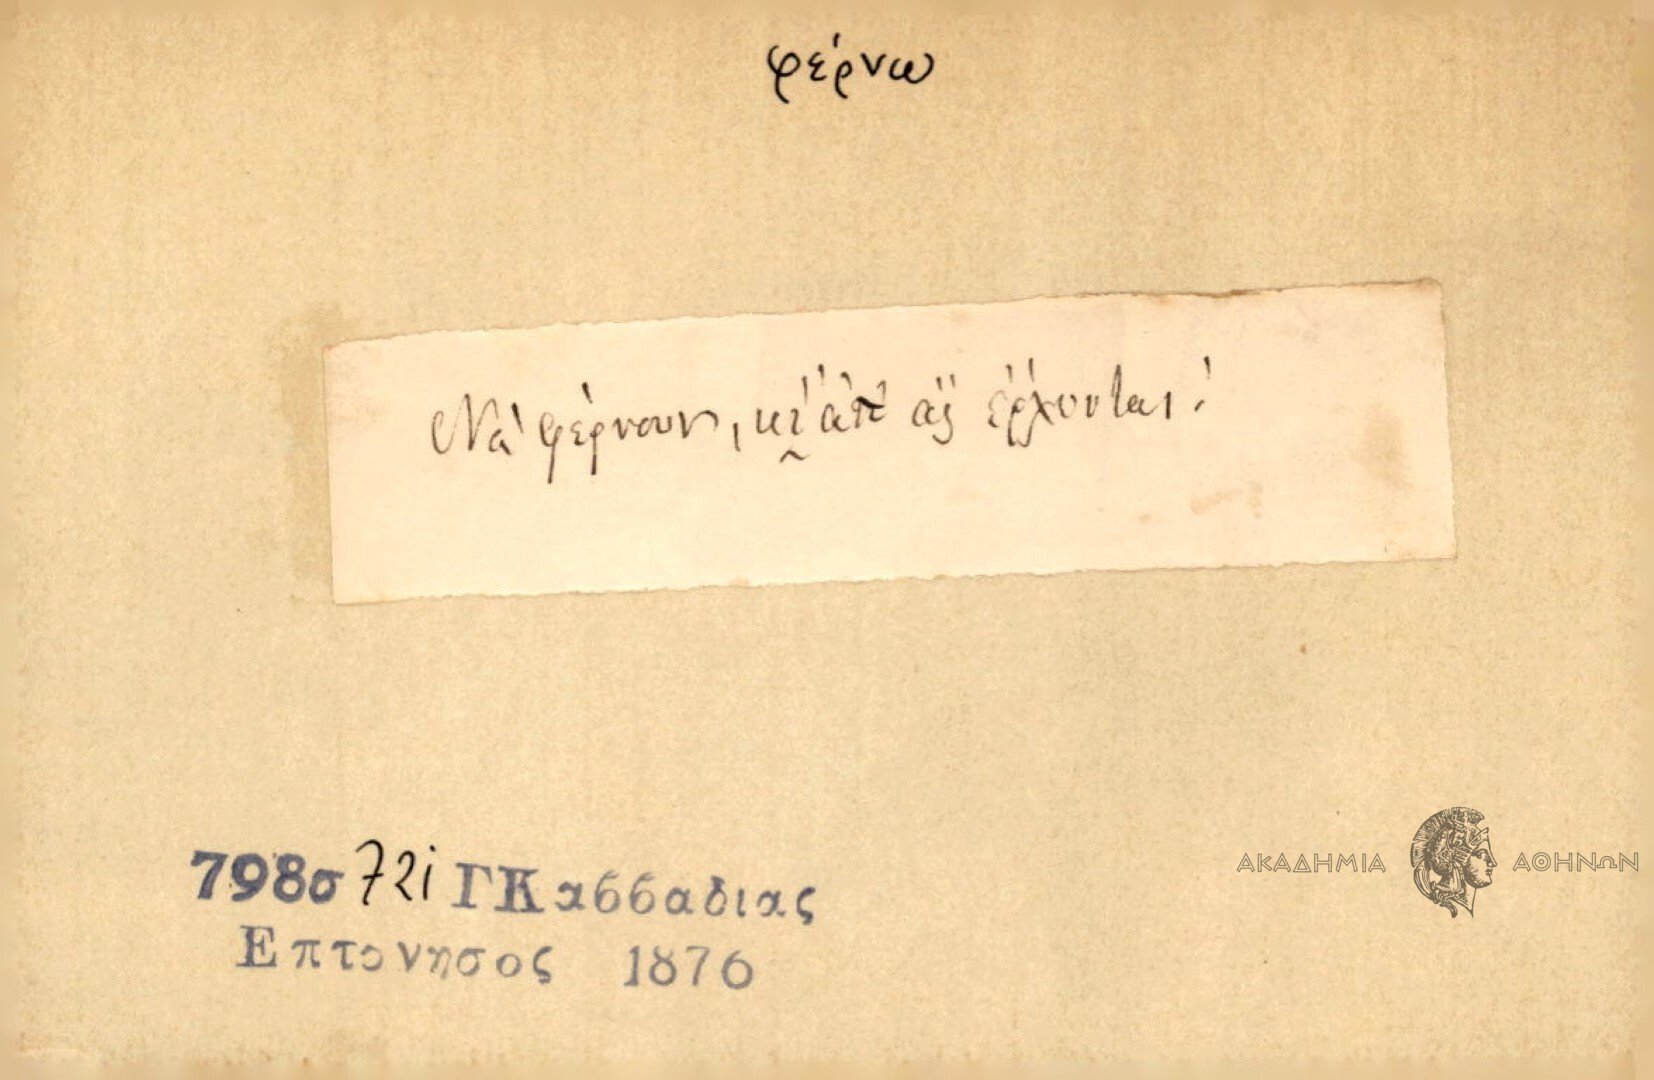 φέρνω
Νὰ φέρνουν, κι̯ ἀπ' ἂς ἔρχουνται!
798σ 72i ΓΚαββαδιας
Επτονησος 1876
ΑΚΑΔΗΜΙΑ ΑΘΗΝΩΝ